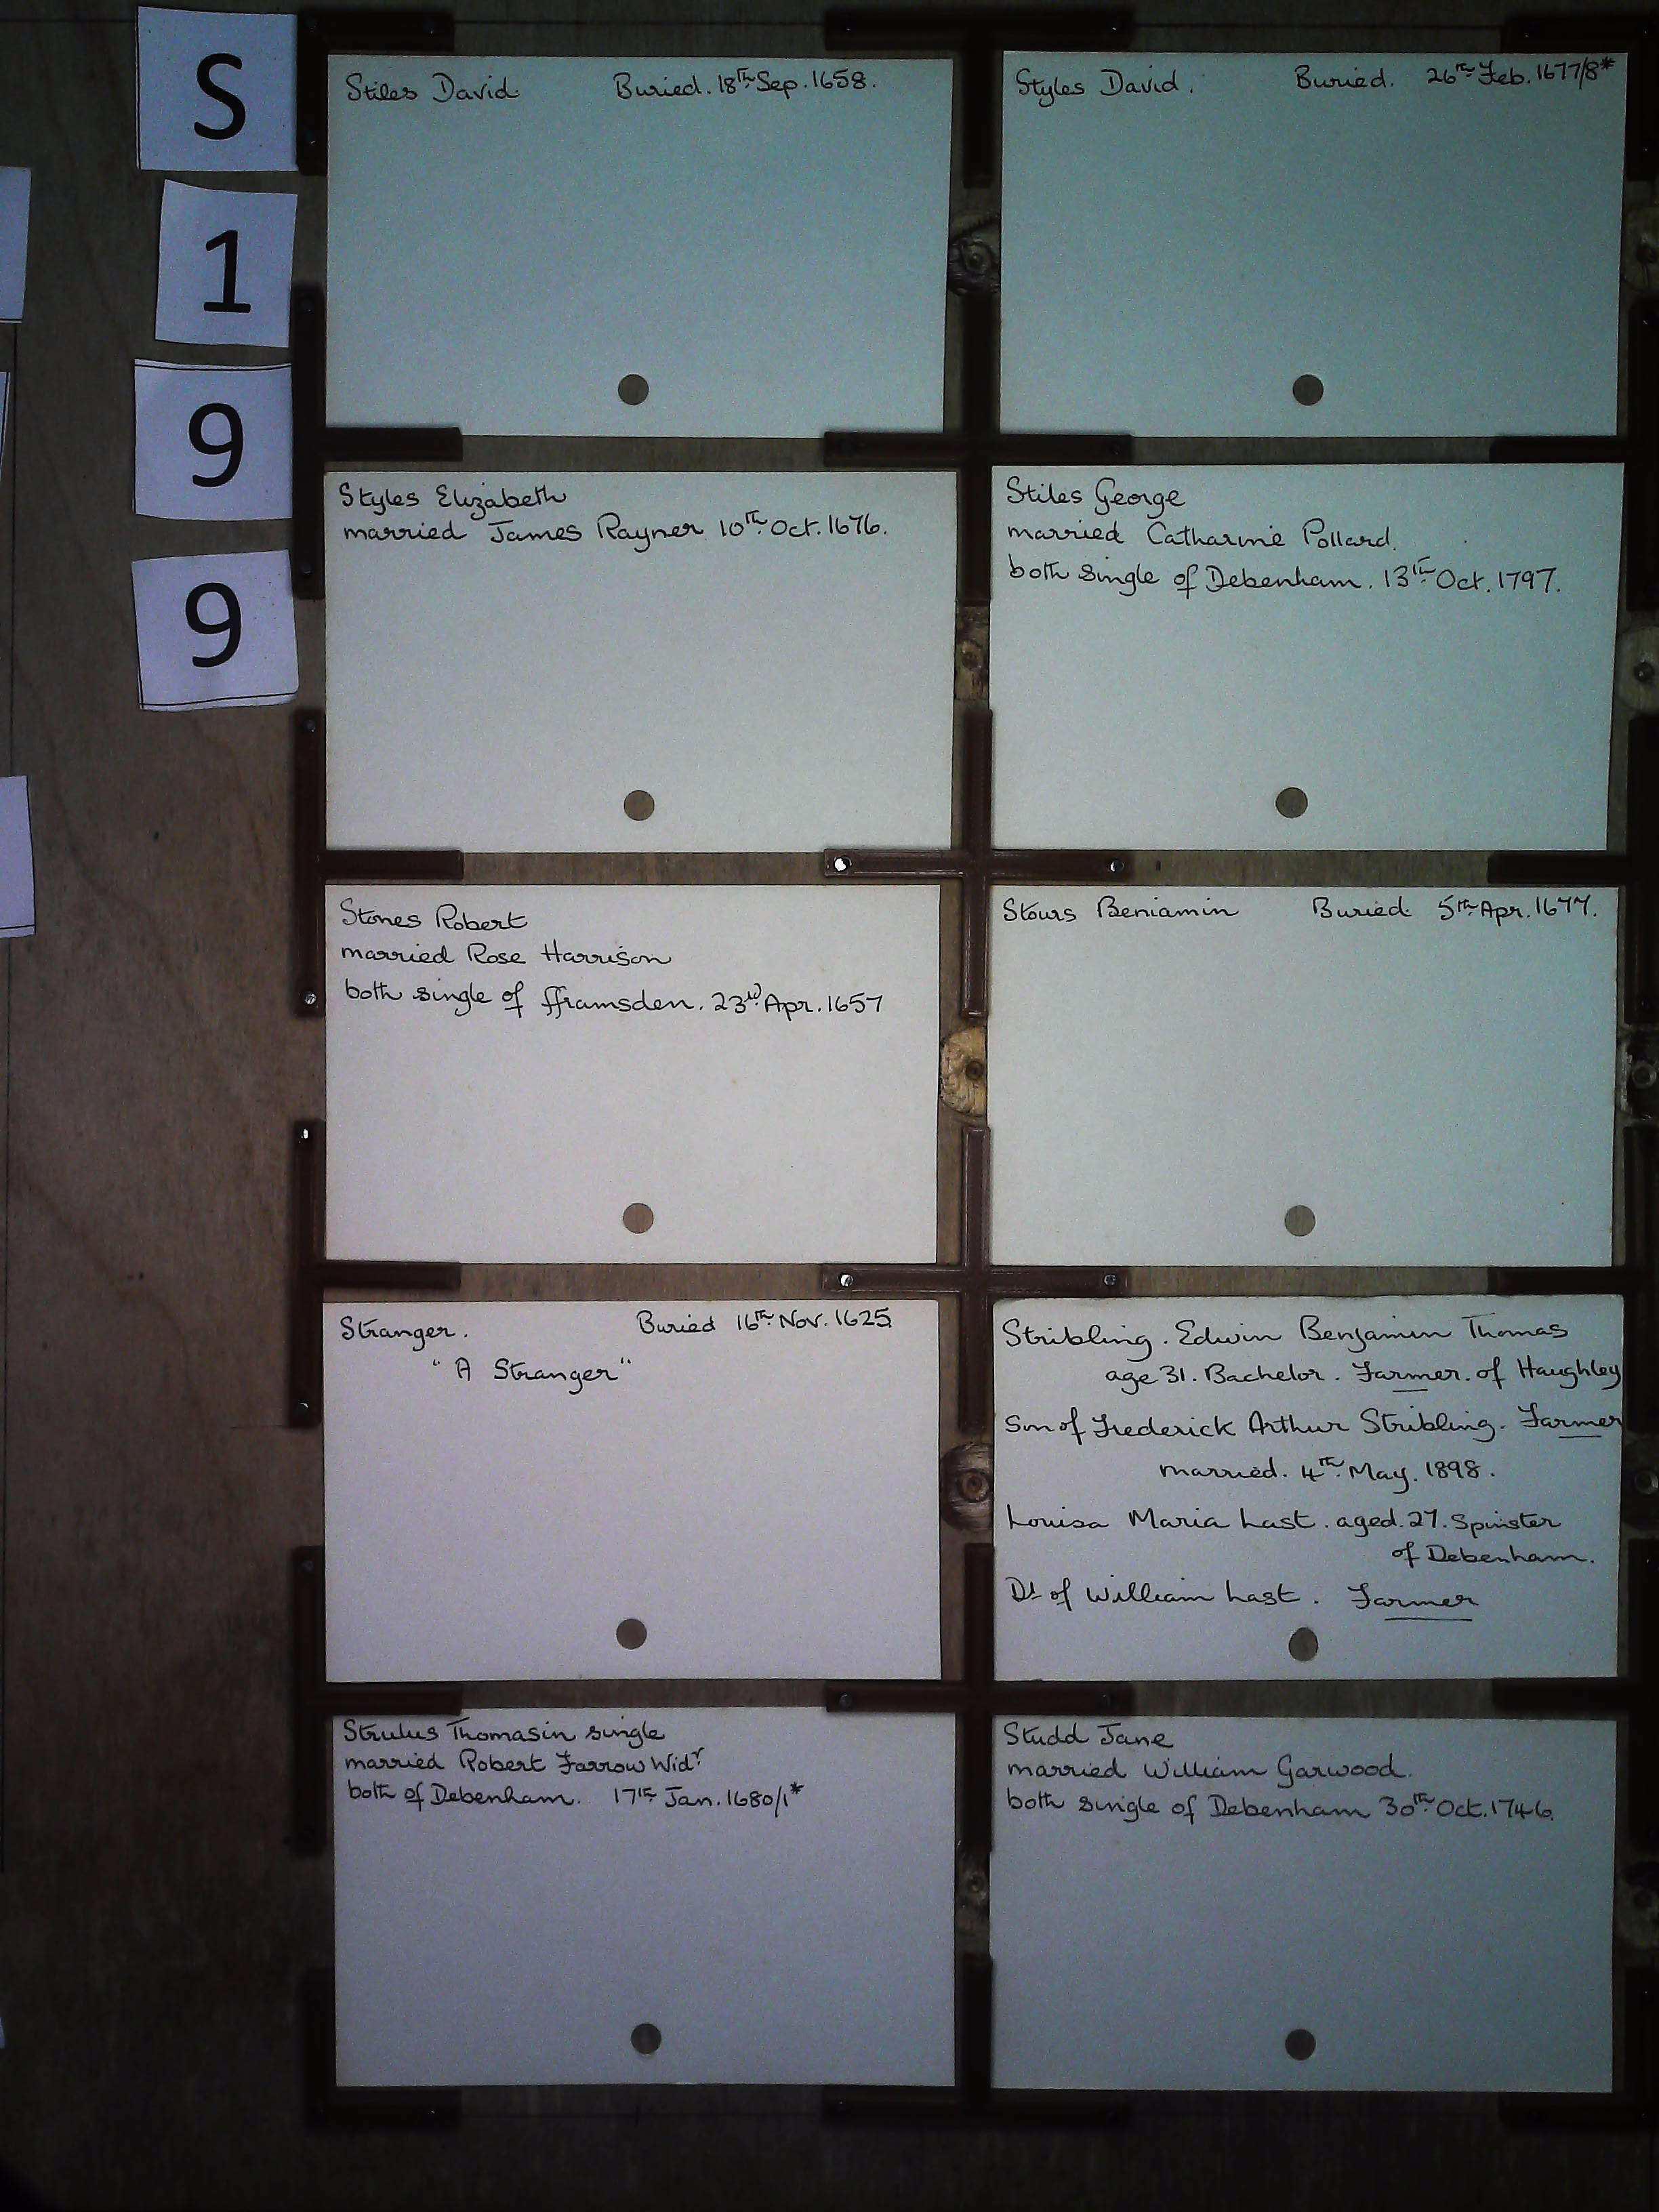 S
1
9
9
Stiles David. Buried. 18th Sep. 1658.
Styles David. Buried. 26th Feb. 1677/8*
Styles Elizabeth
married James Rayner 10th Oct. 1676.
Stiles George
married Catharine Pollard.
both single of Debenham. 13th Oct. 1797.
Stones Robert
married Rose Harrison
both single of fframsden. 23rd Apr. 1657
Stours Beniamin Buried 5th Apr. 1677.
Stranger. Buried 16th Nov. 1625.
"A Stranger"
Stribling. Edwin Benjamin Thomas
age 31. Bachelor. Farmer. of Haughley
Son of Frederick Arthur Stribling. Farmer
married. 4th May. 1898.
Louisa Maria Last. aged. 27. Spinster
of Debenham.
Dr of William Last. Farmer
Strulus Thomasin single
married Robert Farrow Widr
both of Debenham. 17th Jan. 1680/1*
Studd Jane
married William Garwood.
both single of Debenham 30th Oct. 1746.